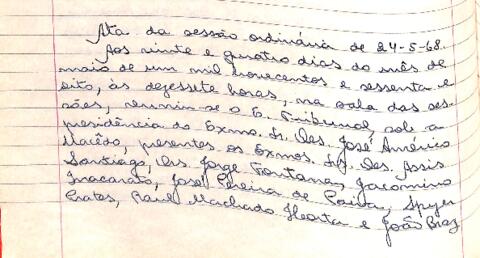 Ata da sessão ordinária de 24-5-68.
Aos vinte e quatro dias do mês de
maio de um mil novecentos e sessenta e
oito, às dezessete horas, na sala das ses-
sões, reuniu-se o E. Tribunal, sob a
presidência do Exmo. Sr. Des. José Américo
Macêdo, presentes os Exmos. Srs. Des. Assis
Santiago, Drs. Jorge Fontana, Jacomino
Inacarato, José Pereira de Paiva, Spyer
Prates, Raul Machado Horta e João Braz